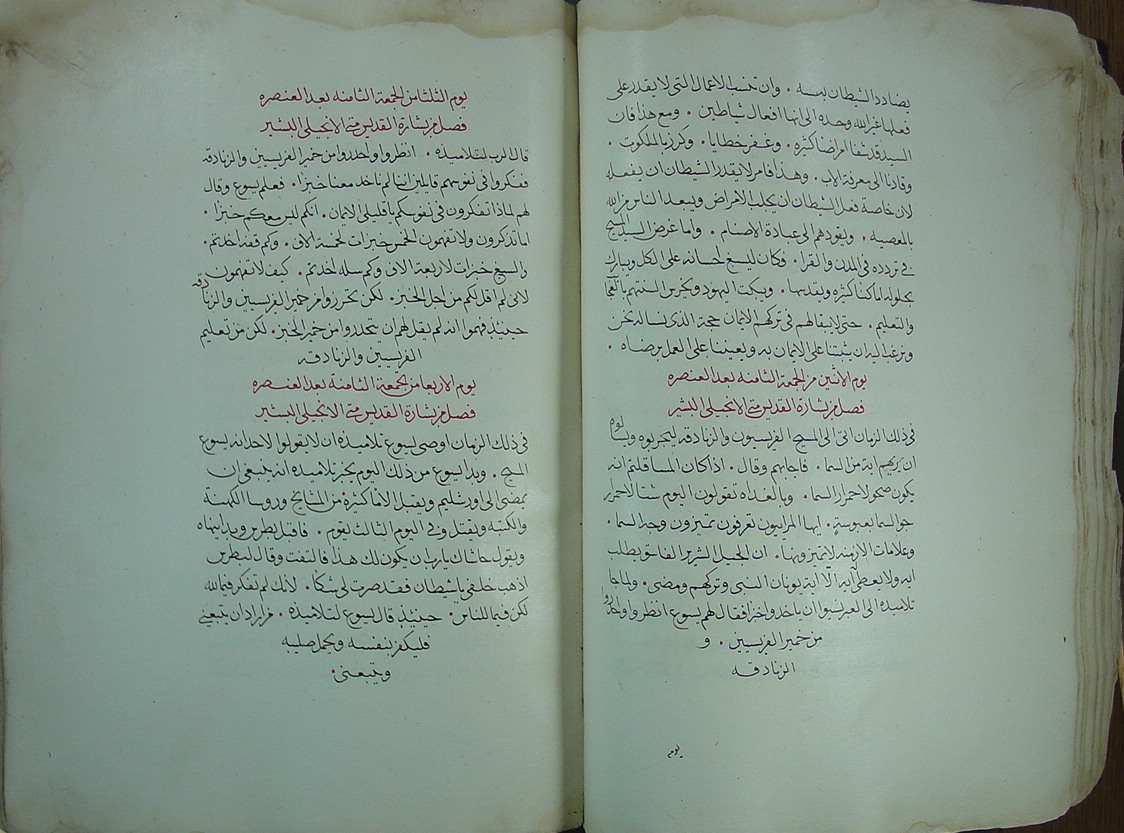 يضادد الشيطان نفسه . وان تنسب الاعمال التى لا يقدر على
فعلها غير الله وحده الى انها افعال شياطين . ومع هذا فان
السيد قد شفا امراضا كثيره . وغفر خطايا . وكرز بالملكوت .
وقادنا الى معرفة الاب . وهذا فامر لا يقدر الشيطان ان يفعله
لان خاصة فعل الشيطان ان يجلب الامراض ويبعد الناس من الله
بالمعصيه . ويقودهم الى عبادة الاصنام . واما غرض السيد المسيح
في تردده في المدن والقرا . فكان ليسبغ احسانه على الكل ويبارك
بحلوله اماكنا كثيره ويقدسها . ويبكت اليهود ويخرس السنتهم
والتعليم . حتى لا يبقا لهم في تركهم الايمان حجة الذى نساله نحن
ونرغب اليه ان يثبتنا على الايمان به ويعيننا على العمل برضاه .
يوم الاثنين من الجمعة الثامنه بعد العنصره
فصل من بشارة القديس متى الانجيلى البشير
فى ذلك الزمان اتى الى المسيح الفريسيون والزنادقه ليجربوه ويسالوه
ان يريهم اية من السما . فاجابهم وقال . اذا كان المسا قلتم انه
يكون صحو لاحمرار السما . وبالغداه تقولون اليوم شتا لاحمرار
جو السما بعبوسة . ايها المراييون تعرفون تميزون وجه السما .
وعلامات الازمنه لا تميزونها . ان الجيل الشرير الفاسق يطلب
ايه ولا يعطى آيه الا اية يونان النبى وتركهم ومضى . ولما جا
تلاميذه الى العبر نسيوا ان ياخذوا خبزا فقال لهم يسوع انظروا واحذروا
من خمير الفريسيين . و
الزنادقه
يوم
يوم الثلثا من الجمعة الثامنه بعد العنصره
فصل من بشارة القديس متى الانجيلى البشير
قال الرب لتلاميذه . انظروا واحذروا من خمير الفريسيين والزنادقه
ففكروا فى نفوسهم قايلين اننا لم ناخد معنا خبزا . فعلم يسوع وقال
لهم لماذا تفكرون فى نفوسكم يا قليلى الايمان . انكم ليس معكم خبزا .
اما تذكرون ولا تفهمون الخمس خبزات لخمسة الاف . وكم قفه اخدتم .
والسبع خبزات لاربعة الاف وكم سله اخدتم . كيف لا تفهمون
لانى لم اقل لكم من اجل الخبز . لكن تحرزوا من خمير الفريسيين والزنادقه
حينيذ فهموا انه لم يقل لهم ان يتحدروا من خمير الخبز . لكن من تعليم
الفريسيين والزنادقه
يوم الاربعا من الجمعة الثامنة بعد العنصره
فصل من بشارة القديس متى الانجيلى البشير
فى ذلك الزمان اوصى يسوع تلاميذه ان لا يقولوا لاحد انه يسوع
المسيح . وبدا يسوع من ذلك اليوم يخبر تلاميذه انه ينبغى ان
يمضى الى اورشليم ويقبل الاما كثيرة من المشايخ وروسا الكهنة
والكتبه ويقتل وفى اليوم الثالث يقوم . فاقبل بطرس وبدا ينهاه
ويقول حاشاك يا رب ان يكون لك هذا فالتفت وقال لبطرس
اذهب خلفى يا شيطان فقد صرت لى شكا . لانك لم تفكر فيما لله
لكن فيما للناس . حينيذ قال يسوع لتلاميذه . من اراد ان يتبعنى
فليكفر بنفسه ويحمل صليبه
ويتبعنى .